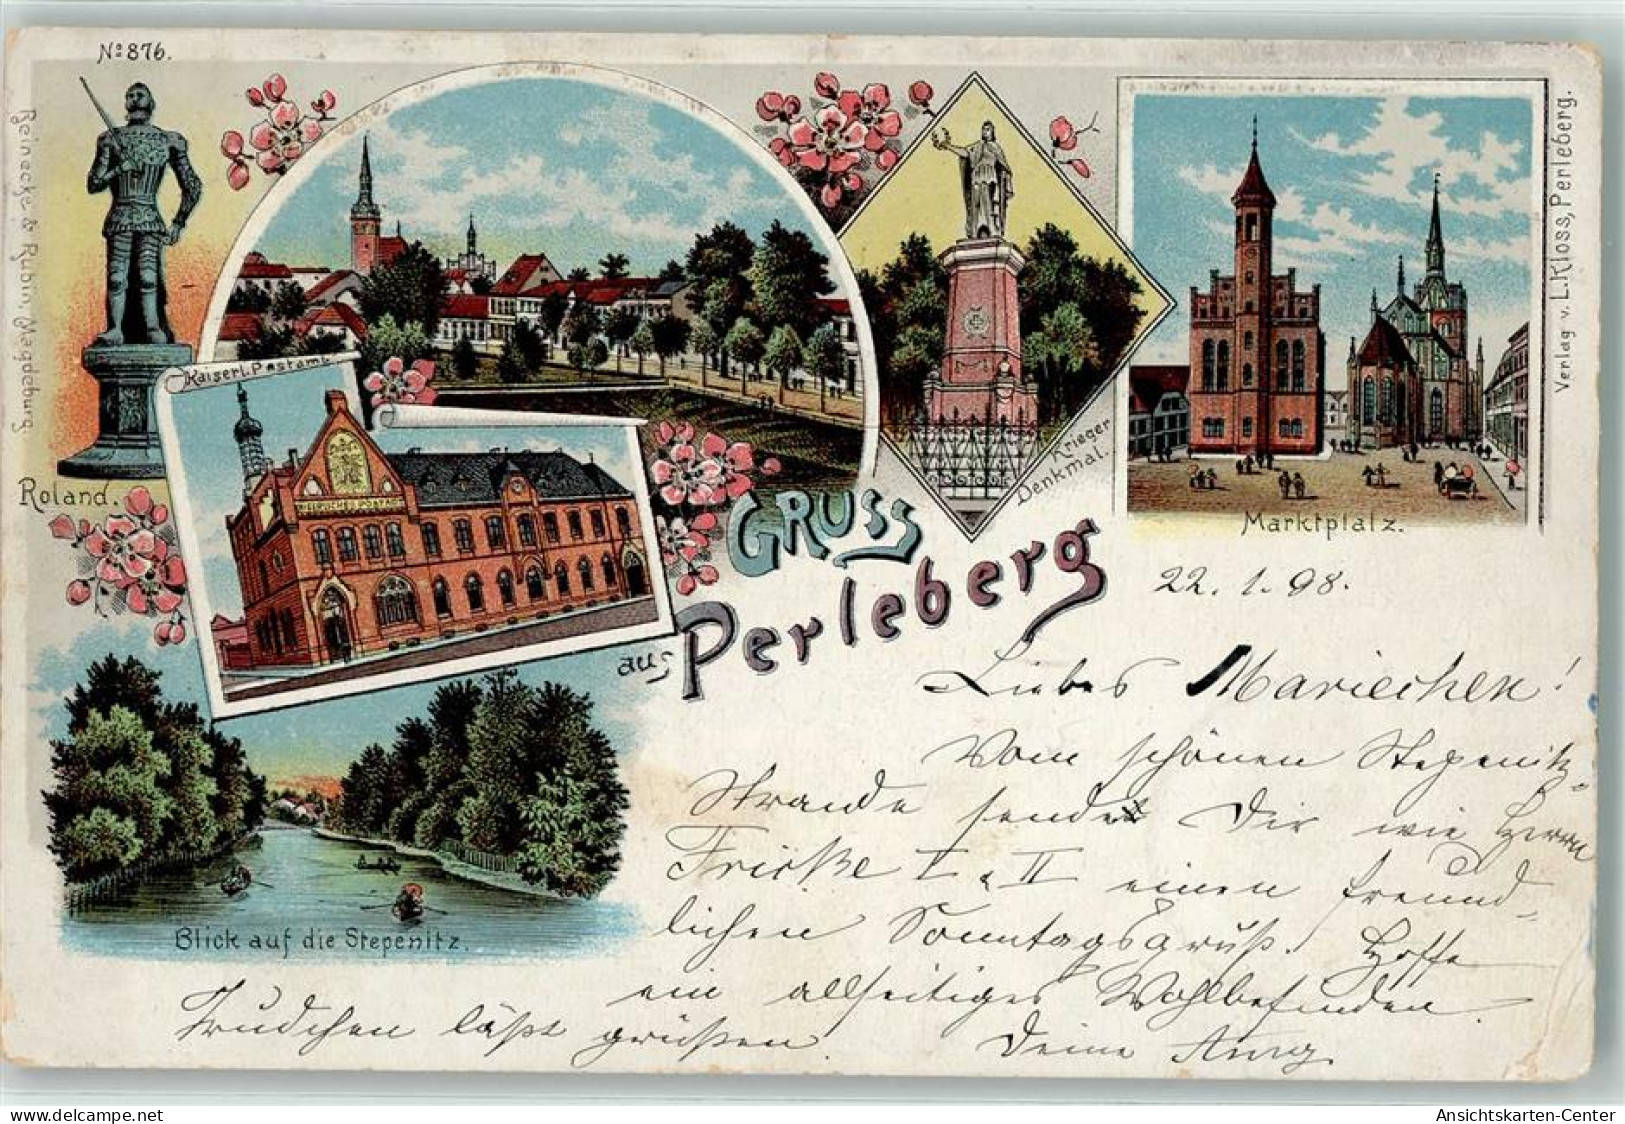 No 876.
Reinecke & Rubin, Magdeburg.
Roland.
Kaiserl. Postamt
Krieger
Denkmal.
Marktplatz.
Verlag v. L. Kloss, Perleberg.
Gruss
aus Perleberg
Blick auf die Stepenitz.
22. 1. 98.
Liebes Mariechen!
Vom schönen Stepenitz-
Strande sende Dir wie Herrn
Fricke I. II einen freund-
lichen Sonntagsgruß. Hoffe
ein allseitiges Wohlbefinden.
Trudchen läßt grüßen.
Deine
Ansichtskarten-Center